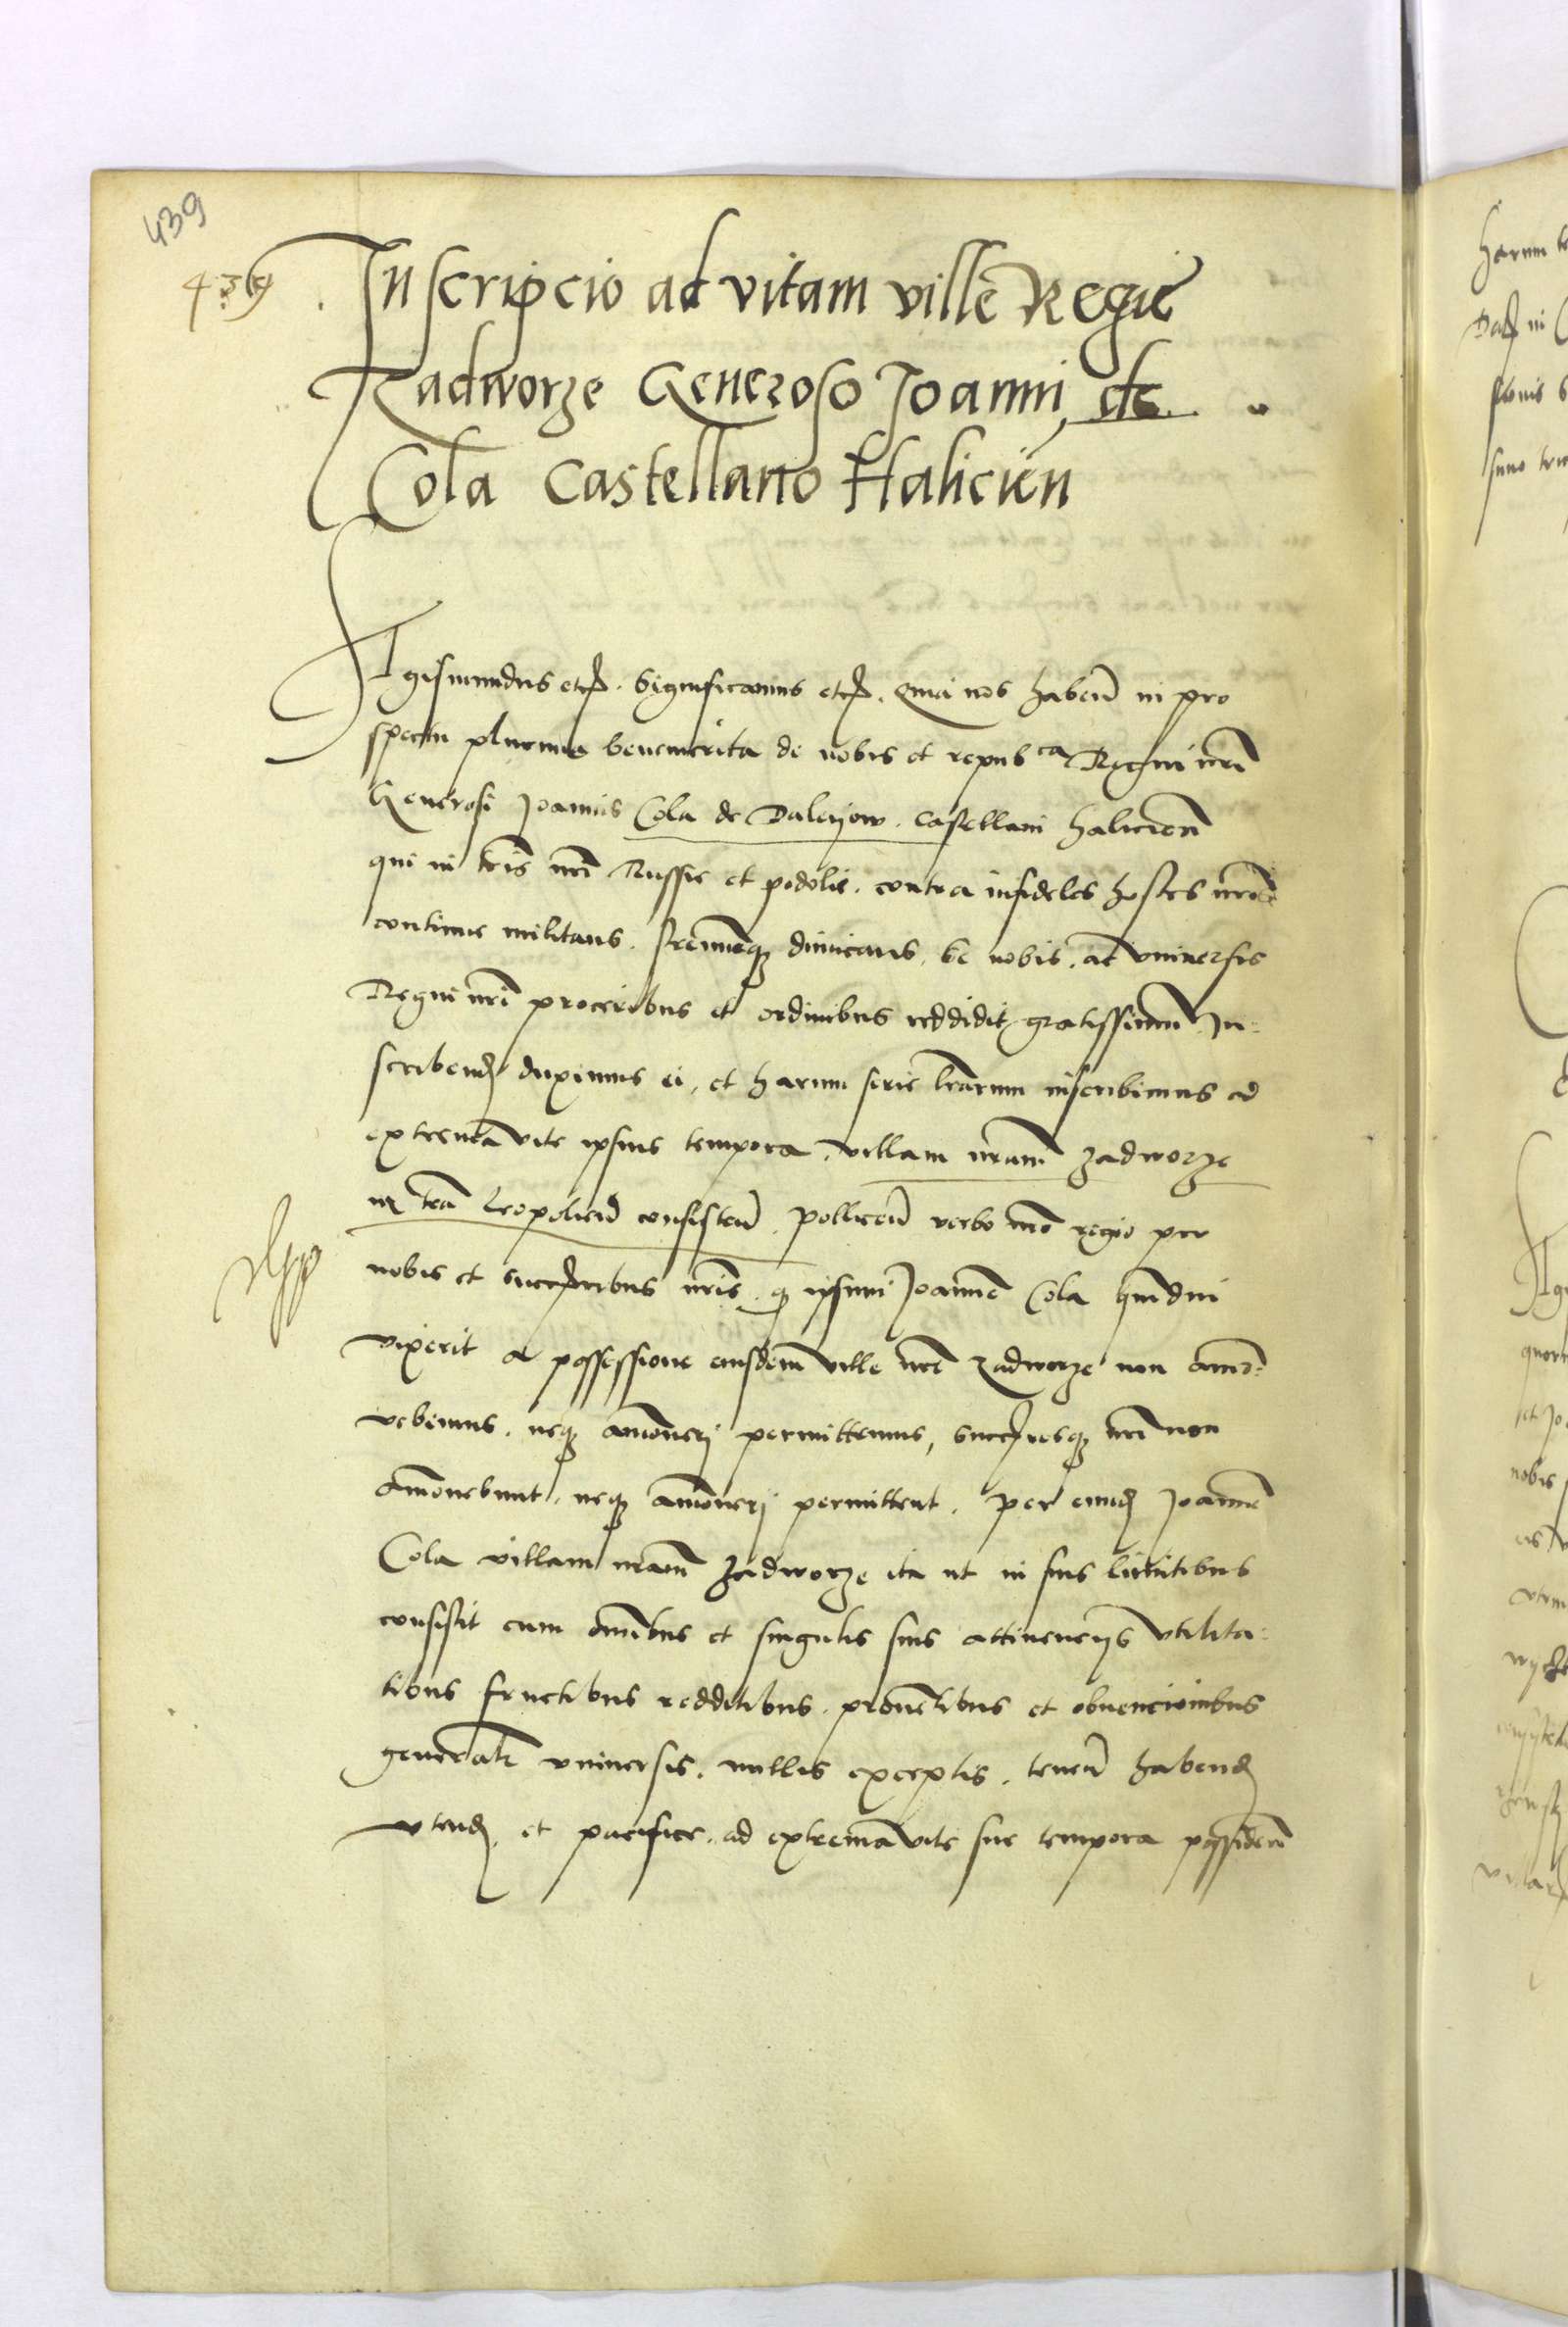 439
439
Inscripcio ad vitam ville Regie
Zadworze Generoso Joanni de
Cola Castellano Halicień
Sigismundus etc. Significamus etc. Quia nos habeñ in pro
spectu plurima benemerita de nobis et repubca Regni nrĩ
Generosi Joannis Cola de Daleyow. Castellani halicieñ
qui in tris nrĩs Russie et podolie. contra infideles hostes nrõs
continue militans. strenueq dimicans, se nobis, ac universis
Regni nrĩ proceribus et ordinibus reddidit gratissimũ. In-
scribenđ duximus ei, et harum serie lrãrum inscribimus ad
extrema vite ipsius tempora. villam nrãm Zadworze
in trã Leopolieñ consisteñ. polliceñ verbo nrõ regio pro
nobis et succribus nrĩs. q ipsum Joannẽ Cola quãdiu
vixerit a possessione eiusdem ville nrẽ Zadworze non amo-
vebimus. neq amoverj permittemus, succresq nrĩ non
amovebunt, neq amoverj permittent. per eund Joannẽ
Cola villam nrãm Zadworze ita ut in suis limitibus
consistit cum omĩbus et singulis suis attinencijs utilita-
tibus fructibus redditibus. provẽtibus et obvencionibus
generalĩ universis. nullis exceptis. teneñ habenđ
utenđ. et pacifice. ad extrema vite sue tempora possideñ
harum
Daƚ in